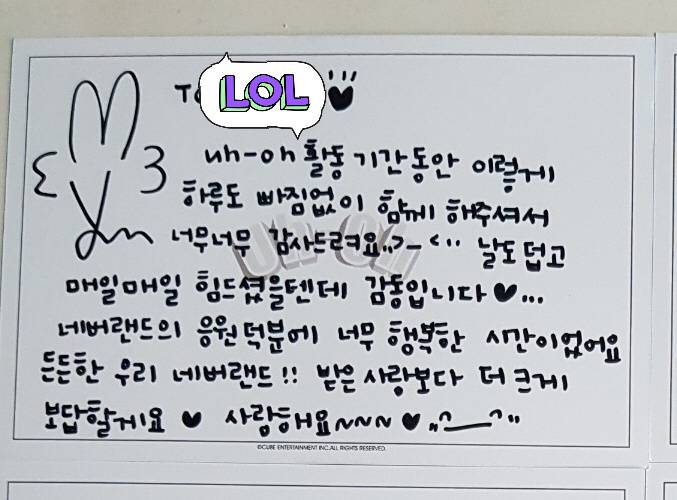 To
LOL
uh-oh 활동 기간동안 이렇게
하루도 빠짐없이 함께 해주셔서
너무너무 감사드려요..>-<.. 날도 덥고
매일매일 힘드셨을텐데 감동입니다♥...
네버랜드의 응원덕분에 너무 행복한 시간이었어요
든든한 우리 네버랜드!! 받은사랑보다 더 크게
보답할게요 ♥ 사랑해요~~~♥,,^__^,,
Uh-Oh
©CUBE ENTERTAINMENT INC.ALL RIGHTS RESERVED.